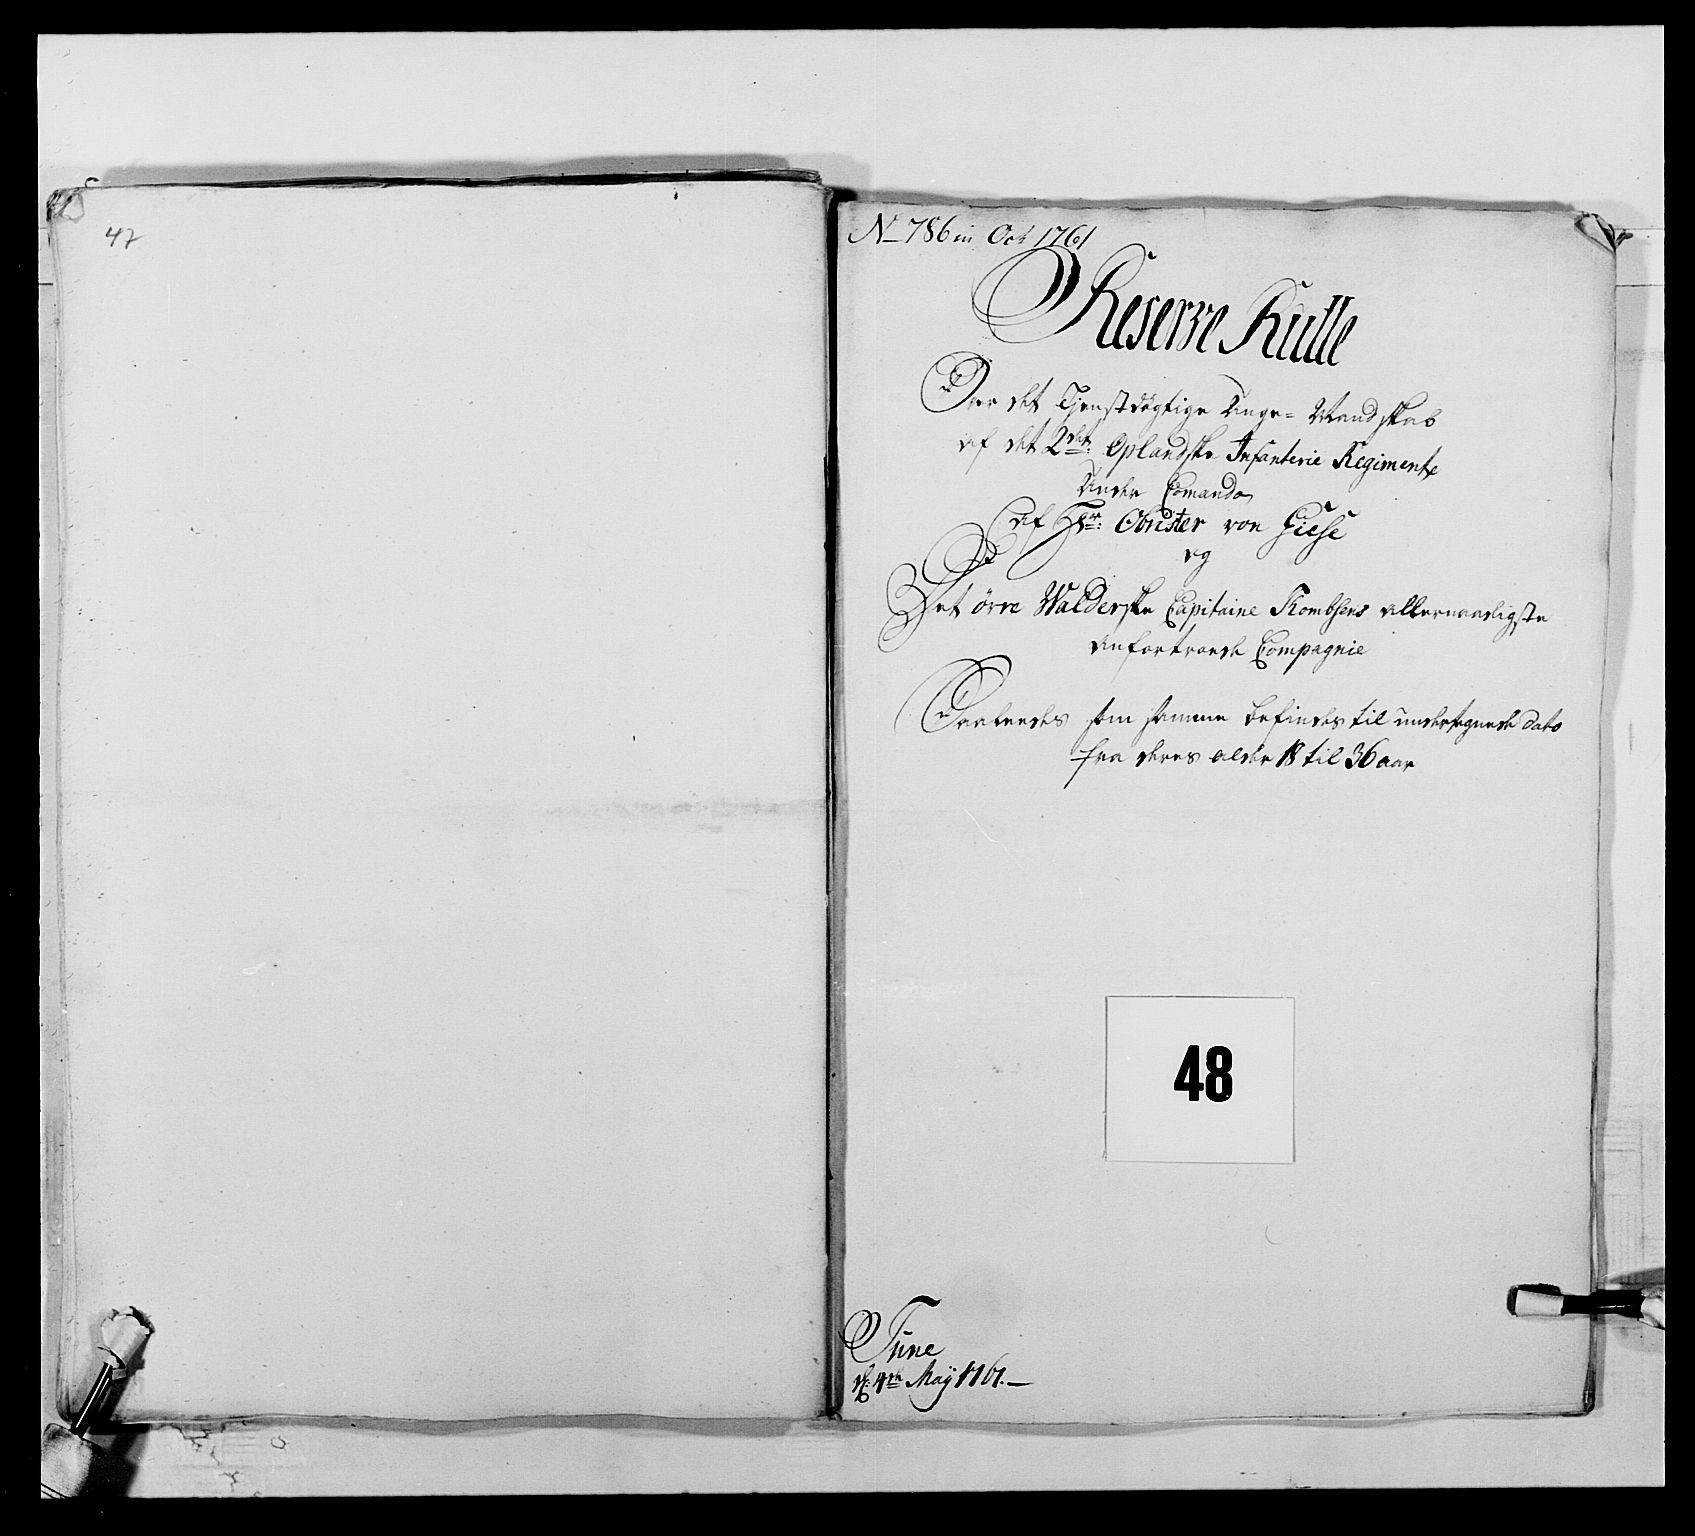 47
No 786 in Oct 1761
Reserve Rulle
Over det Tjenstdögtige Unge= Mandskab
af det 2det: Oplandske Infanterie Regimente
Under Comando
af Hr: Obrister von Giese
og
Det övre Walderske Capitaine allernaadigste
anfortroede Compagnie
Saaledes som samme befindes til undertegnede dato
fra deres alder 18 til 36 aar
48
Tune
d: 4de Maÿ 1761.